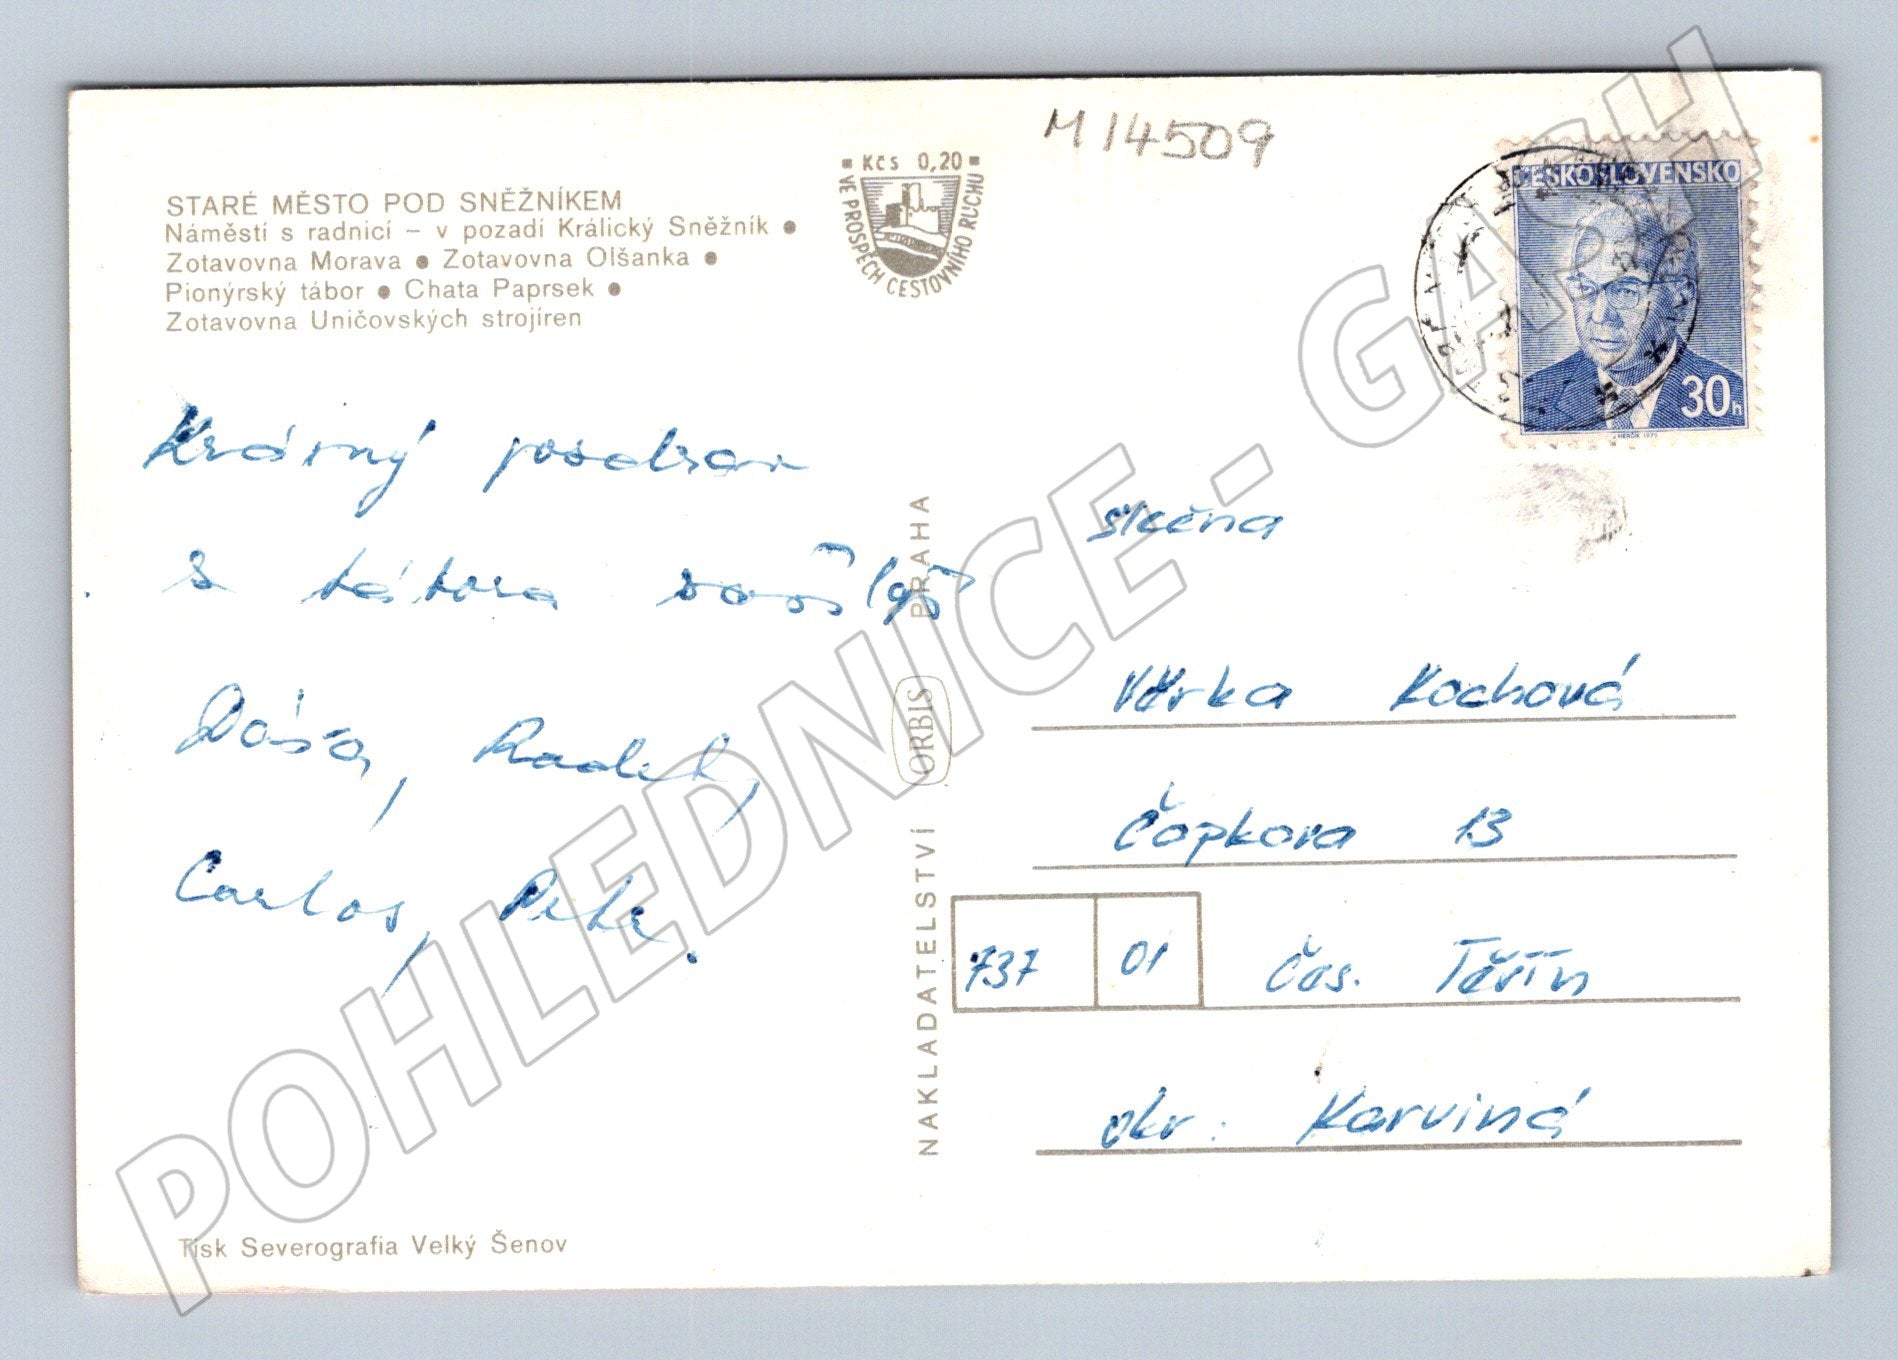 M 14509
STARÉ MĚSTO POD SNĚŽNÍKEM
Náměstí s radnicí – v pozadí Králický Sněžník ●
Zotavovna Morava ● Zotavovna Olšanka ●
Pionýrský tábor ● Chata Paprsek ●
Zotavovna Uničovských strojíren
Kčs 0,20
VE PROSPĚCH CESTOVNÍHO RUCHU
ČESKOSLOVENSKO
30h
J. HERČÍK 1975
Krásný pozdrav
s tábora
Dáša, Radek,
Carlos, Petr.
slečna
Věrka Kochová
Čapkova 13
737 01 Čes. Těšín
okr. Karviná
NAKLADATELSTVÍ ORBIS PRAHA
Tisk Severografia Velký Šenov
POHLEDNICE - GASH